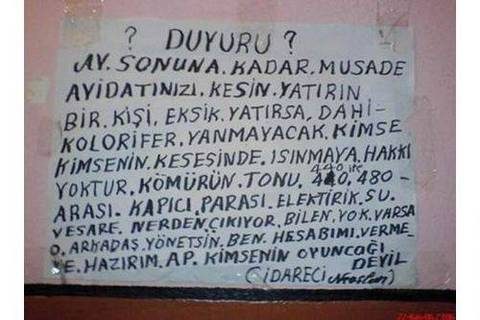 ? DUYURU ?
AY. SONUNA. KADAR. MUSADE
AYİDATINIZI. KESİN. YATIRIN
BİR. KİŞİ, EKSİK. YATIRSA, DAHİ-
KOLORİFER, YANMAYACAK. KİMSE
KİMSENİN. KESESİNDE. ISINMAYA. HAKKI
YOKTUR. KÖMÜRÜN. TONU. 440 ile 480-
ARASI. KAPICI, PARASI. ELEKTİRİK. SU.
VESARE. NERDEN ÇIKIYOR. BİLEN. YOK. VARSA
O. ARKADAŞ. YÖNETSİN. BEN. HESABIMI. VERME-
E. HAZIRIM. AP. KİMSENİN OYUNCAĞI
DEYİL
(İDARECİ